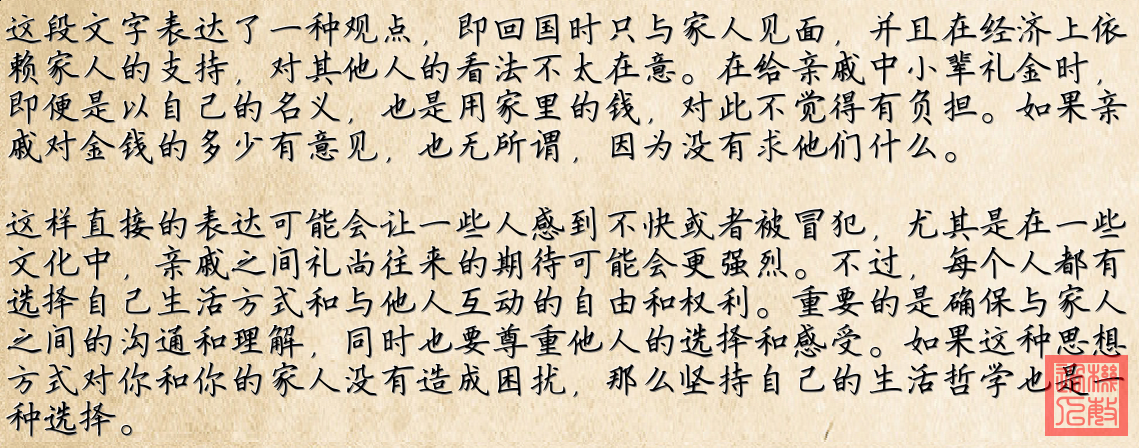 这段文字表达了一种观点，即回国时只与家人见面，并且在经济上依
赖家人的支持，对其他人的看法不太在意。在给亲戚中小辈礼金时，
即便是以自己的名义，也是用家里的钱，对此不觉得有负担。如果亲
戚对金钱的多少有意见，也无所谓，因为没有求他们什么。
这样直接的表达可能会让一些人感到不快或者被冒犯，尤其是在一些
文化中，亲戚之间礼尚往来的期待可能会更强烈。不过，每个人都有
选择自己生活方式和与他人互动的自由和权利。重要的是确保与家人
之间的沟通和理解，同时也要尊重他人的选择和感受。如果这种思想
方式对你和你的家人没有造成困扰，那么坚持自己的生活哲学也是一
种选择。